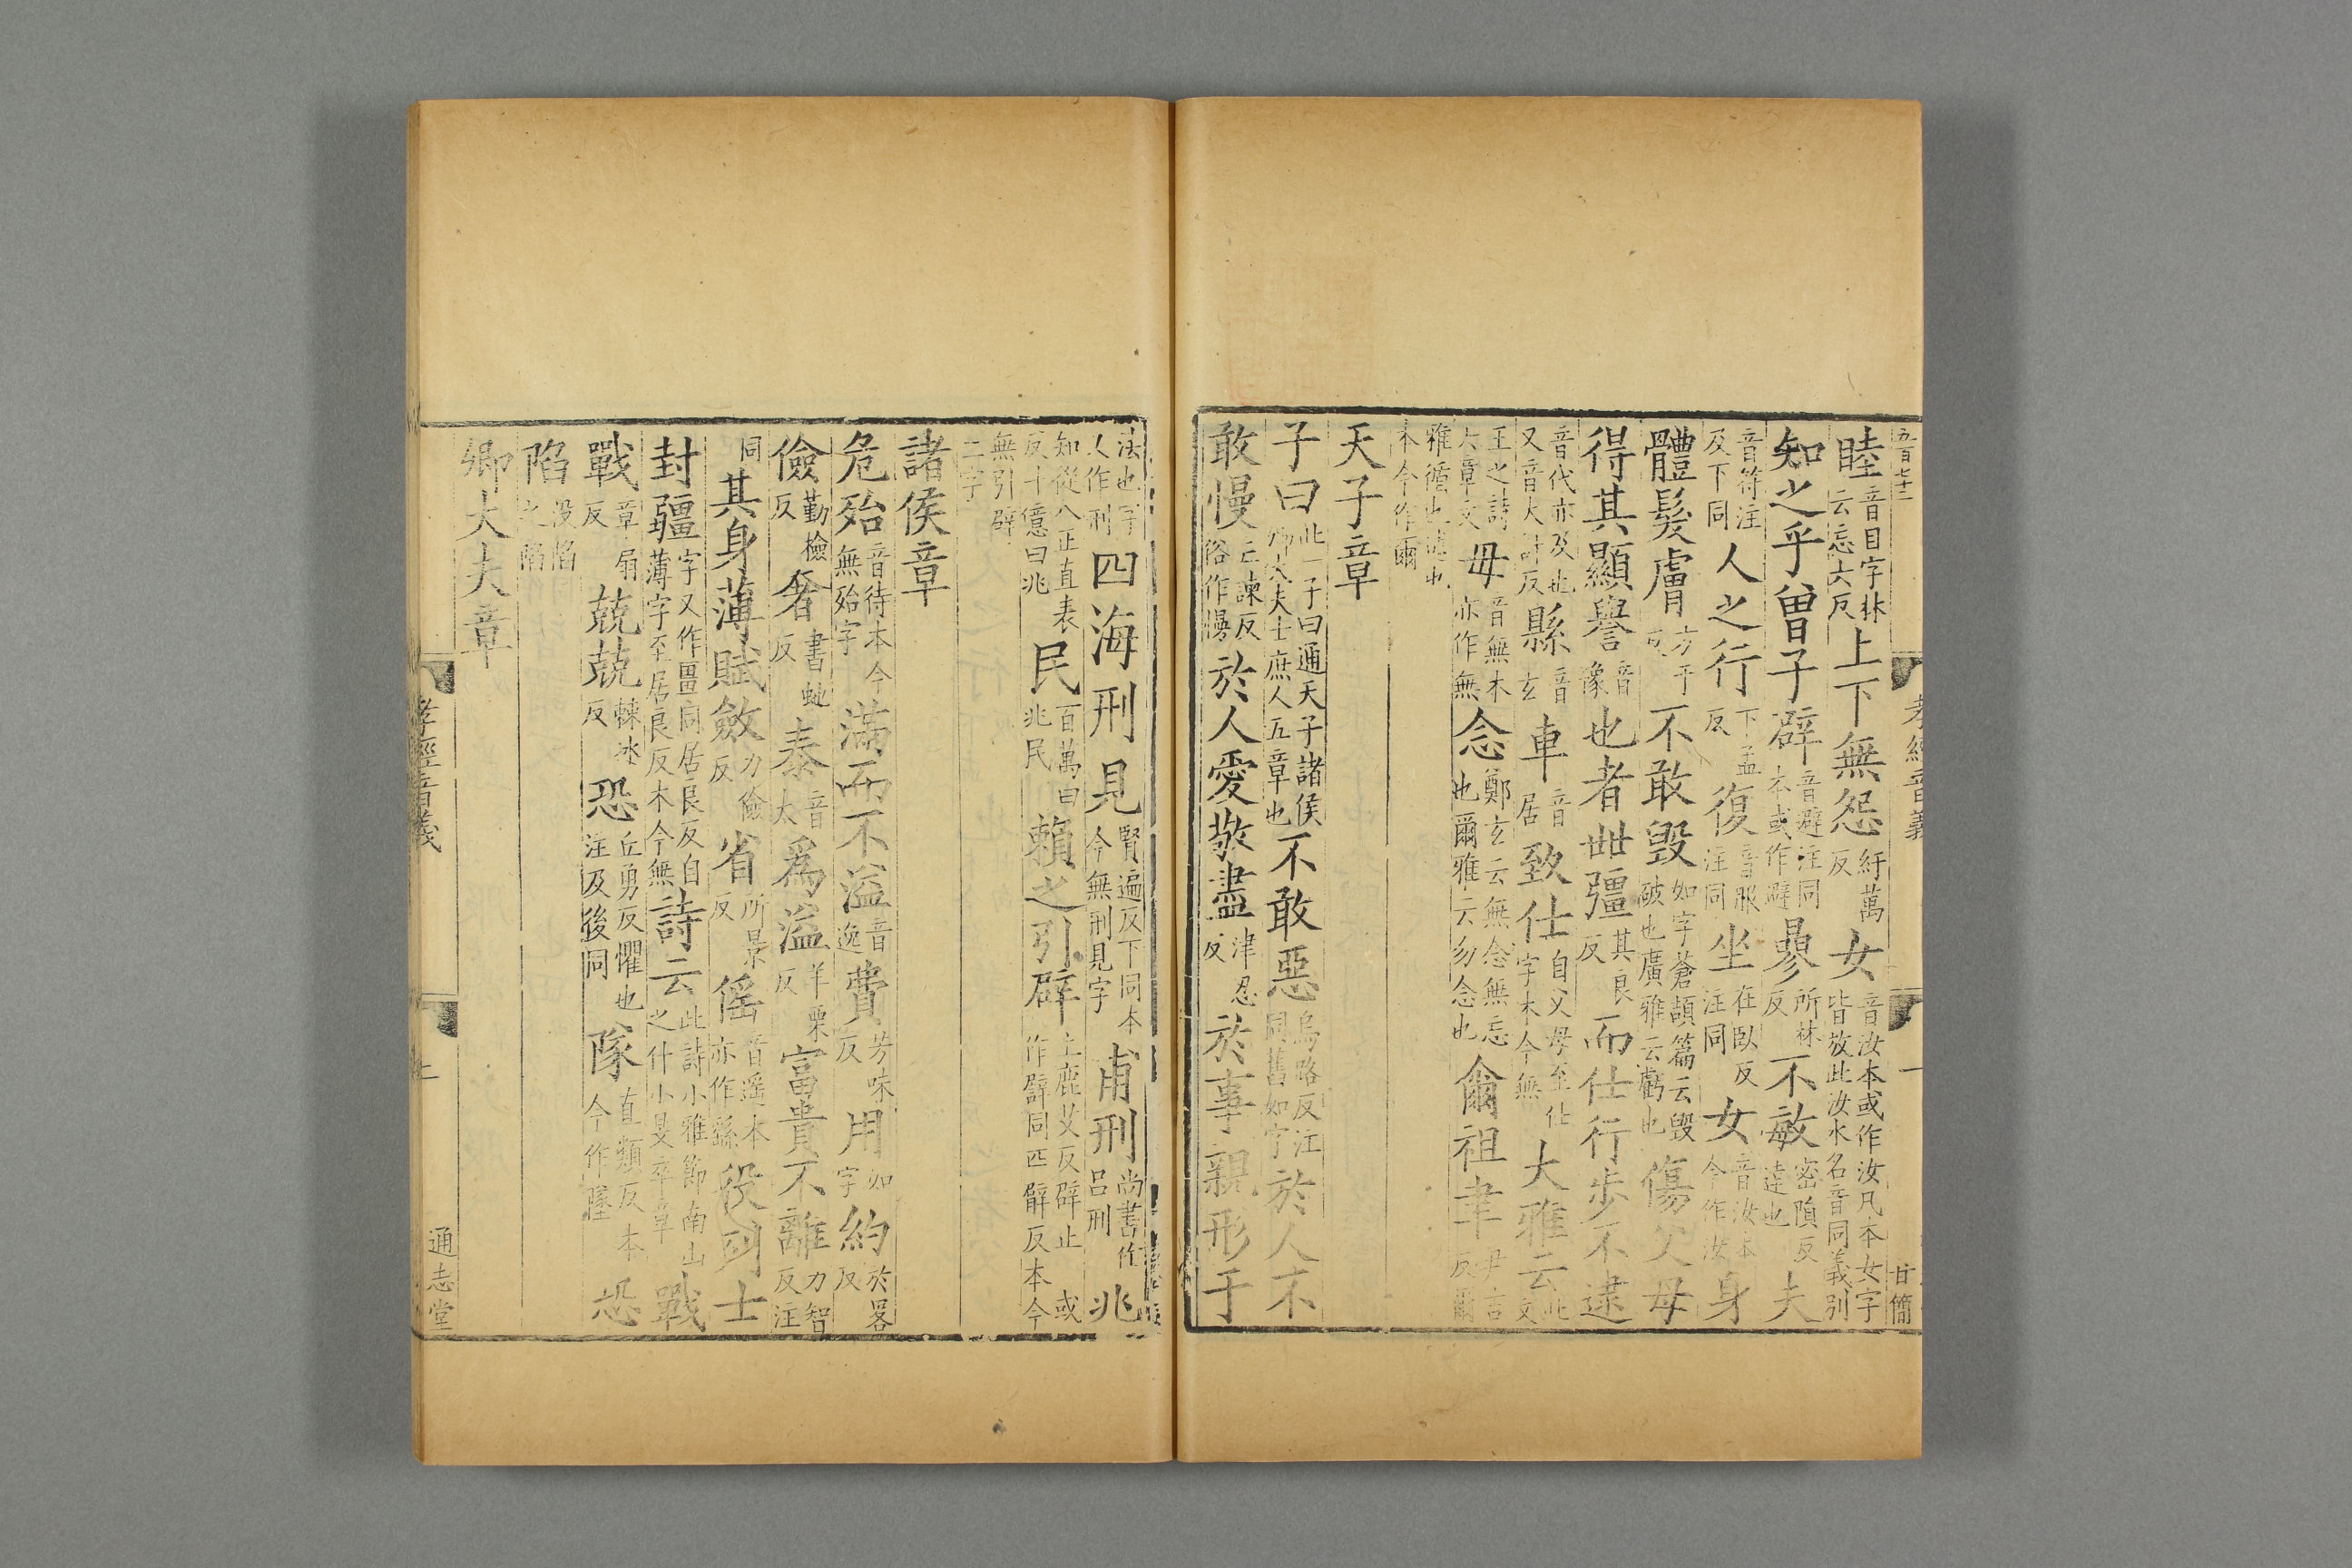 五百七十二
孝經音義
一
甘簡
睦音目字林云忘六反上下無怨紆萬反女音汝本或作汝凡本女字皆放此汝水名音同義别
知之乎曾子辟音避注同本或作避曑所林反不敏密隕反達也夫
音符注及下同人之行下孟反復音服注同坐在臥反注同女音汝本今作汝身
體髮膚方于反不敢毀如字蒼頡篇云毀破也廣雅云虧也傷父母
得其顯譽音豫也者世彊其良反而仕行步不逮
音代亦及也又音大計反縣音玄車音居致仕自父母至仕字本今無大雅云此文
王之詩六章文毋音無本亦作無念鄭玄云無念無忘也爾雅云勿念也爾祖聿尹吉反爾
雅循也述也本今作爾
天子章
子曰此一子曰通天子諸侯卿大夫士庶人五章也不敢惡烏路反注同舊如字於人不
敢慢亡諫反俗作慢於人愛敬盡津忍反於事親形于
法也字又作刑四海刑見賢遍反下同本今無刑見字甫刑尚書作呂刑兆
知從八正直表反十億曰兆民百萬曰兆民賴之引辟亡鹿艾反辟止或作譬同匹臂反本今
無引辟二字
諸侯章
危殆音待本今無殆字滿而不溢音逸費芳味反用如字約於畧反
儉勤檢反奢書虵反泰音太爲溢羊栗反富貴不離力智反注
同其身薄賦斂力儉反省所景反徭音遥本亦作繇役列士
封疆字又作畺同居良反自薄字至居良反本今無詩云此詩小雅節南山之什小旻卒章戰
戰章扇反兢兢棘冰反恐丘勇反懼也注及後同隊直類反本今作墜恐
陷没陷之陷
卿大夫章
孝經音義
二
通志堂